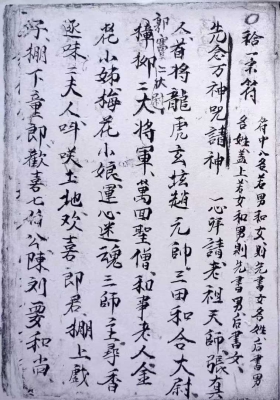 拾一宗符
符中人名若男和女則先書女名姓后書男
名姓盖上若女和男則先書男后書女
先念万神咒諸神 一心拜請老祖天師張真
人首将龍虎玄坛趙元帥三田和合大尉
郭 二大尉
樟柳二大将軍萬回聖僧和事老人金
花小姊梅花小娘運心迷魂三師主尋香
逐味二大人哞咲土地欢喜郎君棚上戲
棚下童郎歡喜七伯公陳列要和尚